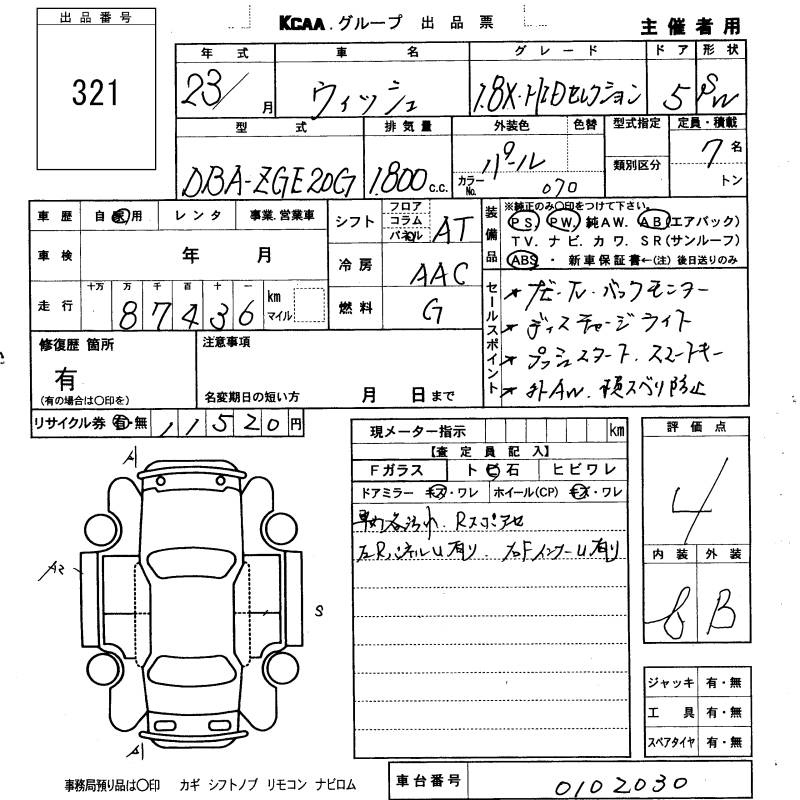 出品番号
321
KCAA.グループ 出品票
主催者用
年式 車名 グレード ドア 形状
23/ 月 ウィッシュ 1.8X・HIDセレクション 5 SW
型式 排気量 外装色 色替 型式指定 定員・積載
DBA-ZGE20G 1800 c.c. パール 7名
カラーNo. 070 類別区分 トン
車歴 自家用 レンタ 事業.営業車
車検 年 月
走行 十万 万 千 百 十 一
87436 km マイル
シフト フロア コラム パネル AT
冷房 AAC
燃料 G
装備品
※純正のみ○印をつけて下さい。
PS. PW. 純AW. AB(エアバック)
TV. ナビ. カワ. SR(サンルーフ)
ABS ・ 新車保証書←(注)後日送りのみ
セールスポイント
*ナビ・TV・バックモニター
*ディスチャージライト
*プッシュスタート.スマートキー
*外AW.横スベリ防止
修復歴 箇所
有
(有の場合は○印を)
注意事項
名変期日の短い方 月 日まで
リサイクル券 有・無 11520円
現メーター指示 km
【査定員記入】
Fガラス トビ石 ヒビワレ
ドアミラー キズ・ワレ ホイール(CP) キズ・ワレ
右FインナーU有り
評価点
4
内装 外装
B
A
AR
S
A
ジャッキ 有・無
工具 有・無
スペアタイヤ 有・無
事務局預り品は○印 カギ シフトノブ リモコン ナビロム
車台番号 0102030